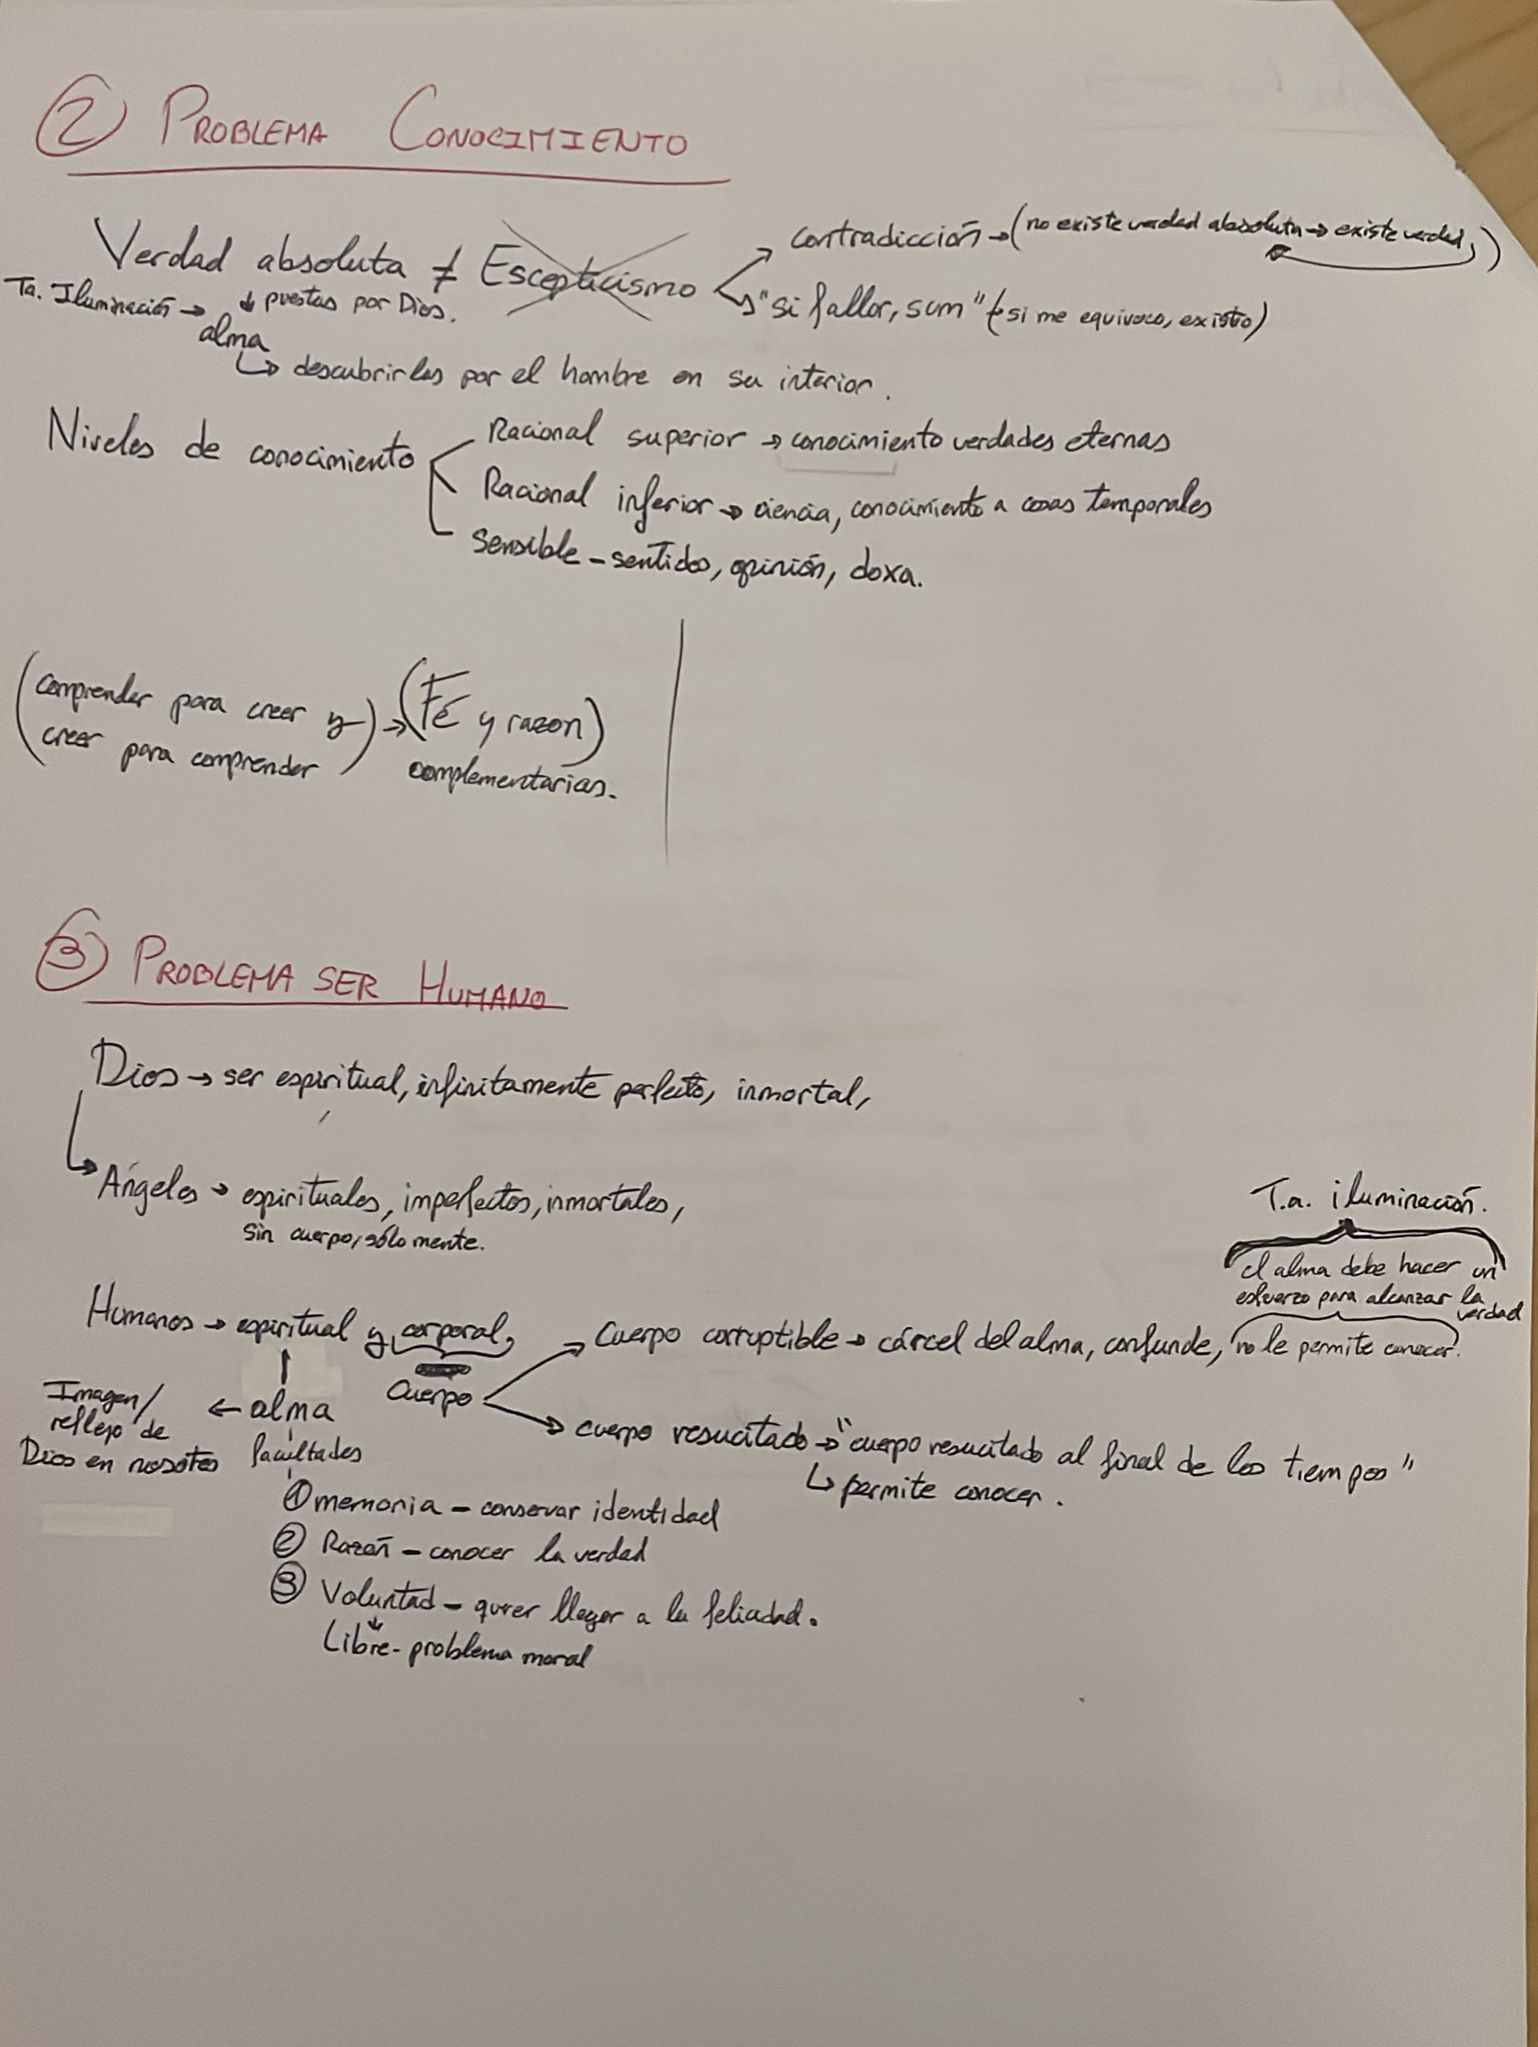 ② PROBLEMA CONOCIMIENTO
Verdad absoluta ≠ Escepticismo
contradicción → (no existe verdad absoluta → existe verdad)
"si fallor, sum" (si me equivoco, existo)
Ta. Iluminación → ↓ puestas por Dios.
alma
↳ descubrirlas por el hombre en su interior.
Niveles de conocimiento
Racional superior → conocimiento verdades eternas
Racional inferior → ciencia, conocimiento a cosas temporales
Sensible - sentidos, opinión, doxa.
(comprender para creer y
creer para comprender) → (Fé y razon)
complementarias.
③ PROBLEMA SER HUMANO
Dios → ser espiritual, infinitamente perfecto, inmortal,
↳ Ángeles → espirituales, imperfectos, inmortales,
sin cuerpo, sólo mente.
T.a. iluminación.
el alma debe hacer un
esfuerzo para alcanzar la
verdad
Humanos → espiritual y corporal,
cuerpo
Cuerpo corruptible → cárcel del alma, confunde, no le permite conocer.
cuerpo resucitado → "cuerpo resucitado al final de los tiempos"
↳ permite conocer.
Imagen/
reflejo de
Dios en nosotros
← alma
facultades
① memoria - conservar identidad
② Razón - conocer la verdad
③ Voluntad - querer llegar a la felicidad.
Libre - problema moral